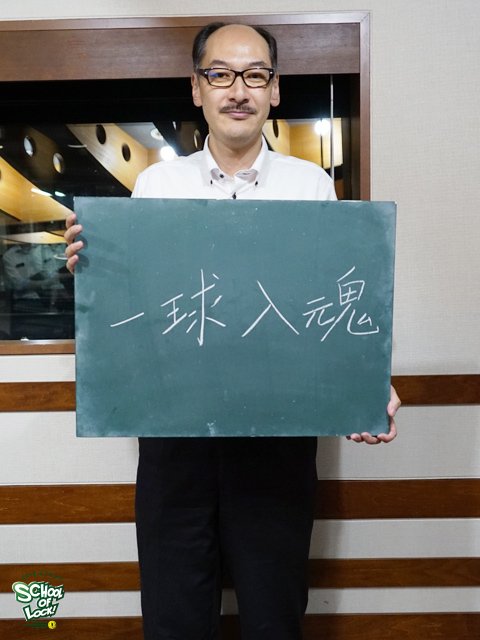 一球入魂
SCHOOL
OF
LOCK!